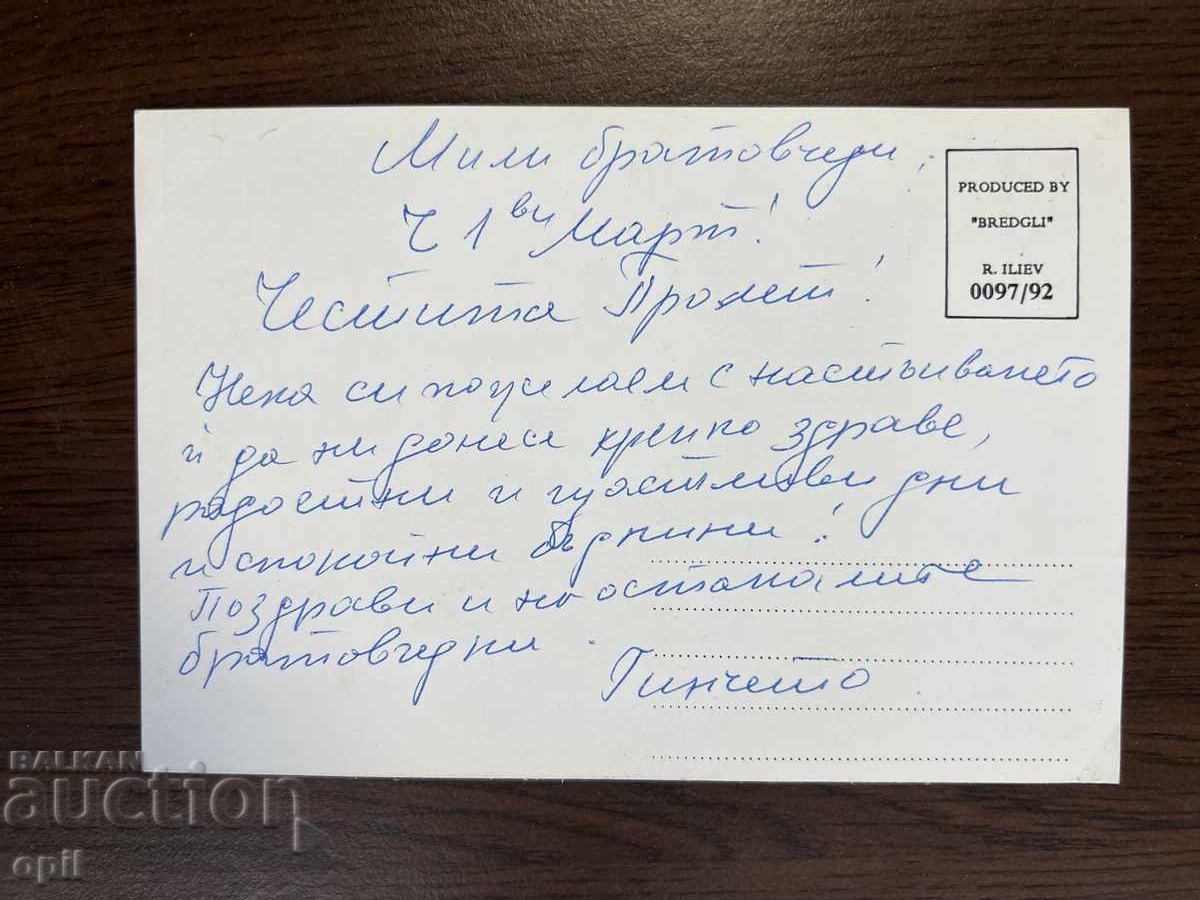 Мили братовчеди,
Ч 1ви Март!
Честита Пролет!
Нека си пожелаем с настъпването
ѝ да ни донесе крепко здраве,
радостни и щастливи дни
и спокойни бъднини!
Поздрави и на останалите
братовчедки.
Гинчето
PRODUCED BY
"BREDGLI"
R. ILIEV
0097/92
BALKAN
auction
opil